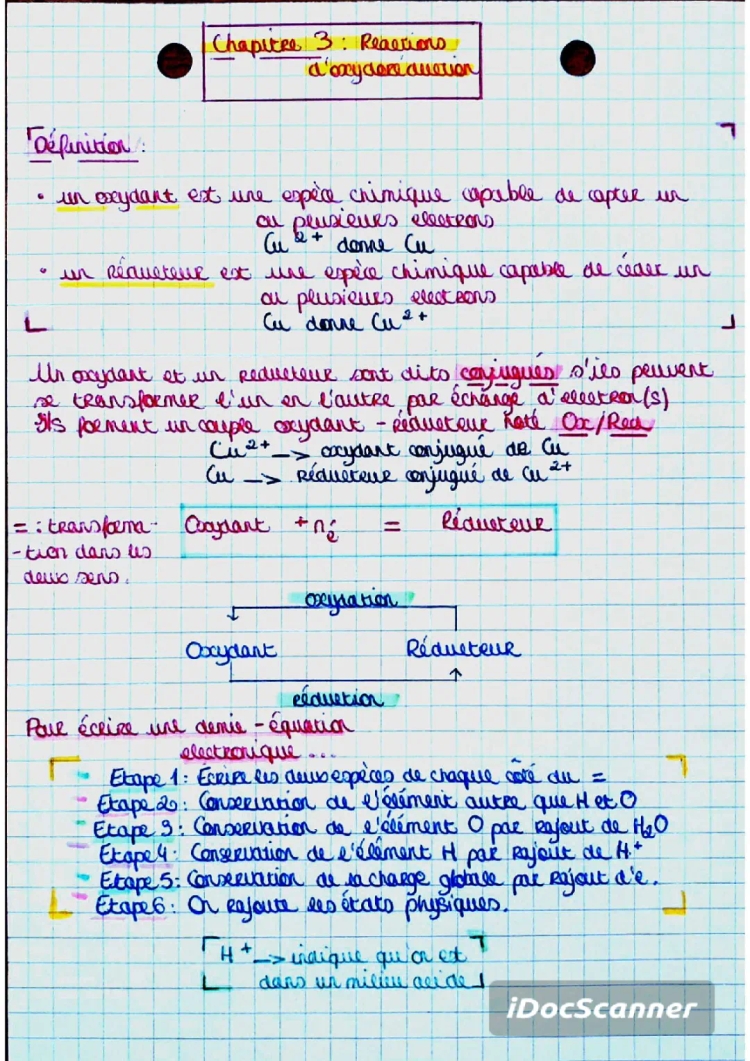 Chapitre 3 : Réactions
d'oxydoréduction
Définition :
• un oxydant est une espèce chimique capable de capter un
ou plusieurs electrons
Cu²⁺ donne Cu
• un réducteur est une espèce chimique capable de céder un
ou plusieurs electrons
Cu donne Cu²⁺
Un oxydant et un reducteur sont dits conjugués s'ils peuvent
se transformer l'un en l'autre par échange d'electron(s)
Ils forment un couple oxydant - réducteur noté Ox/Red
Cu²⁺ —> oxydant conjugué de Cu
Cu —> réducteur conjugué de Cu²⁺
= : transforma-
-tion dans les
deux sens.
Oxydant + né = Réducteur
oxydation
Oxydant Réducteur
réduction
Pour écrire une demie - équation
electronique ...
- Etape 1 : Ecrire les deux espèces de chaque côté du =
- Etape 2 : Conservation de l'élément autre que H et O
- Etape 3 : Conservation de l'élément O par rajout de H₂O
- Etape 4 : Conservation de l'élément H par rajout de H⁺
- Etape 5 : Conservation de la charge globale par rajout d'e.
- Etape 6 : On rajoute les états physiques.
H⁺ —> indique qu'on est
dans un milieu acide
iDocScanner